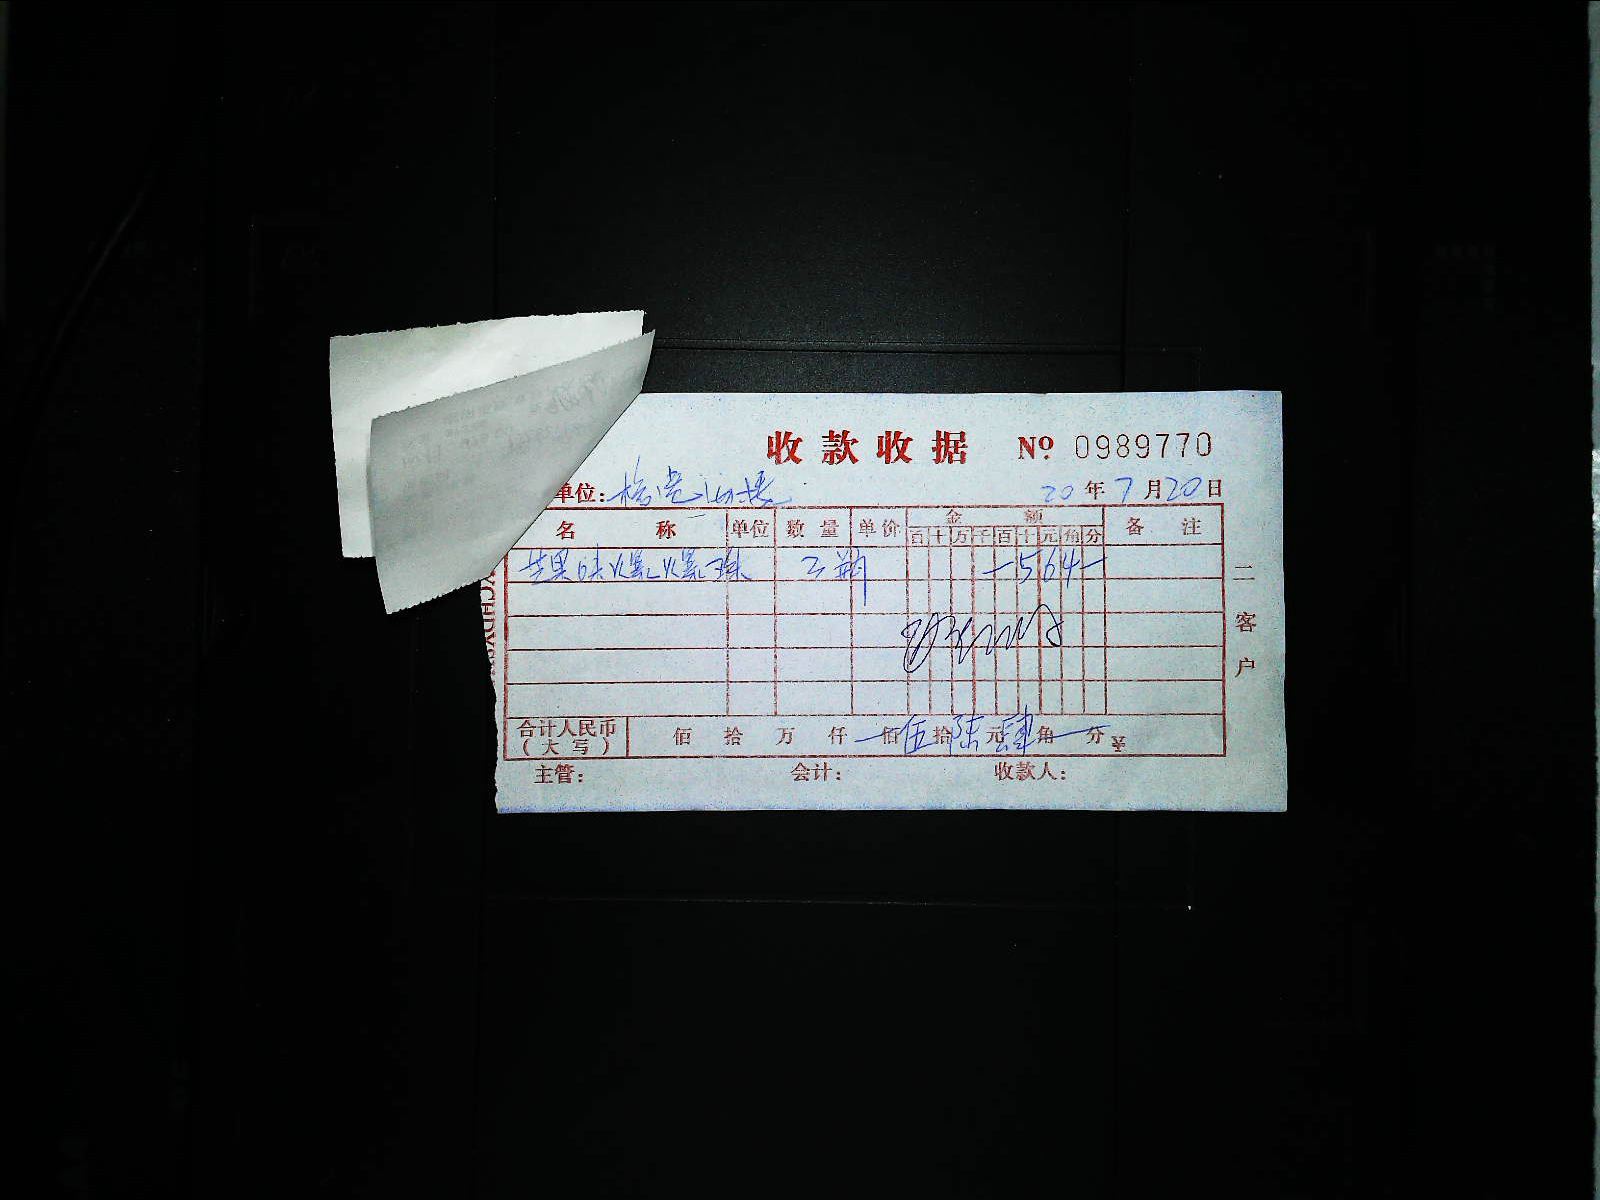 收款收据 № 0989770
单位:
20年7月20日
名称 单位 数量 单价 金额 备注
百十万千百十元角分
苹果味爆爆珠 三瓶 —564—
二客户
合计人民币(大写) 佰 拾 万 仟 佰 伍拾 陆元 肆角 分 ¥
主管: 会计: 收款人: